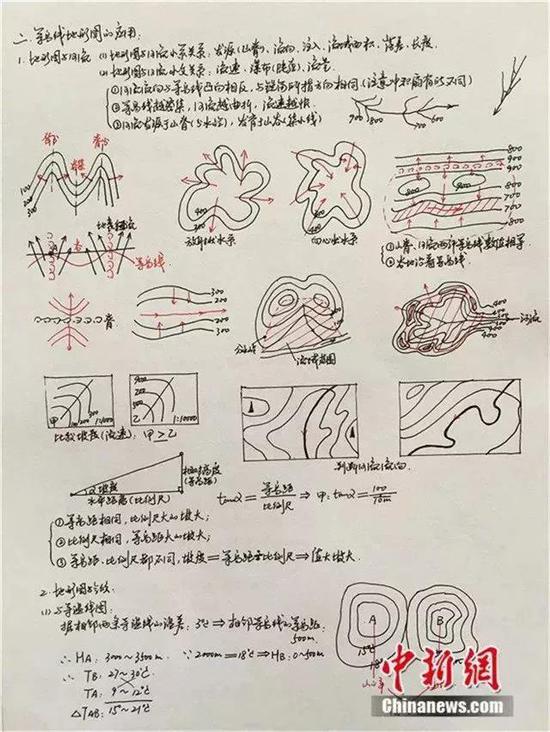 二、等高线地形图的应用:
1. 地形图与河流 (1)地形图与河流水系关系: 发源(山脊)、流向、注入、流域面积、落差、长度
(2)地形图与河流水文关系: 流速、瀑布(陡崖)、流量
①河流流向与等高线凸向相反,与
②等高线越密集,河流越曲折,流速越快
③河流发源于山脊(分水岭),发育于山谷(集水线)
300
200
100
400
300
400
300
放射状水系
向心状水系
800
900
900
800
800
800
700
700
800
等高线
①山脊、河流两侧等高线数值相等
②谷地沿着等高线
300
200
200
300
分水岭
流域范围
400
河流
甲
1:10000
乙
1:10000
比较坡度(流速): 甲>乙
判断河流流向
相对高度
(等高距)
α坡度
水平距离(比例尺)
tanα= 等高距/比例尺 ⇒ 甲: tanα=
①等高距相同,比例尺大的坡大;
②比例尺相同,等高距大的坡大;
③等高距、比例尺都不同,坡度=等高距 比例尺⇒值大坡大.
2. 地形图与气候
(1)与等温线图:
据相邻两条等温线的温差: 3℃⇒相邻等高线的等高距:
500m.
∴ HA: 3000~3500m. ∵2000m=18℃⇒HB: 0~500m
∴ TB: 27~30℃
TA: 9~12℃
△TAB: 15~21℃
A
15℃
18℃
B
中新網
Chinanews.com